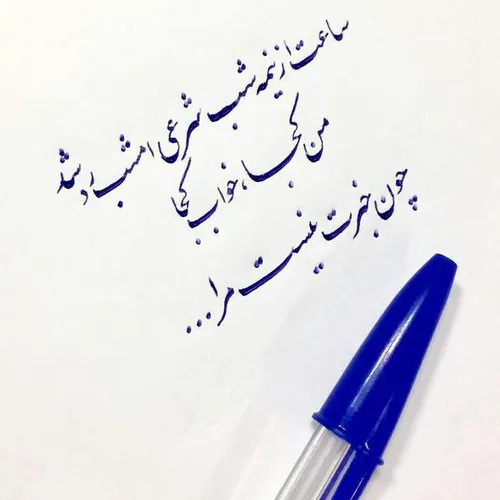 ساعت از نیمه شب شرعی امشب رد شد
من کجا، خواب کجا
چون خبرت نیست مرا...